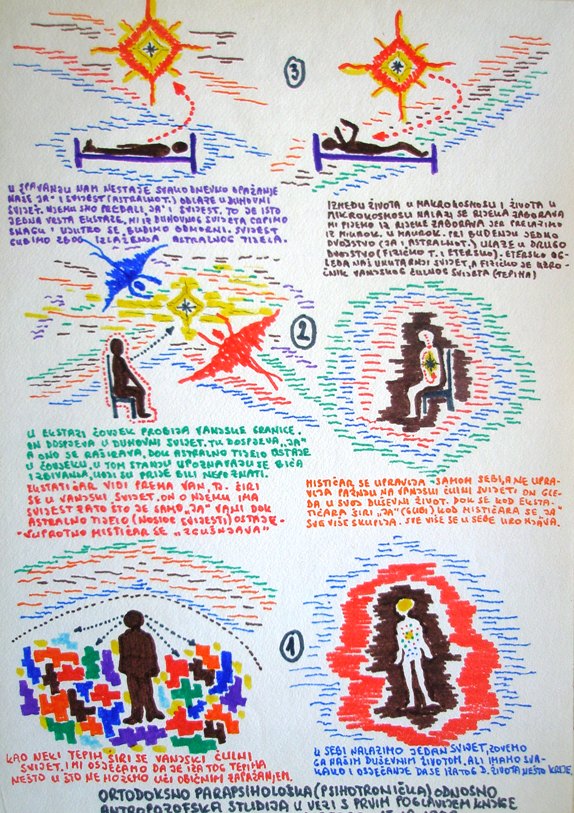 3
U SPAVANJU NAM NESTAJE SVAKODNEVNO OPAŽANJE
NAŠE „JA" I SVIJEST (ASTRALNOT.) ODLAZE U DUHOVNI
SVIJET. NJEMU SMO PREDALI „JA" I SVIJEST. TO JE ISTO
JEDNA VRSTA EKSTAZE, MI IZ DUHOVNOG SVIJETA CRPIMO
SNAGU I UJUTRO SE BUDIMO ODMORNI. SVIJEST
GUBIMO ZBOG IZLAŽENJA ASTRALNOG TIJELA.
IZMEĐU ŽIVOTA U MAKROKOSMOSU I ŽIVOTA U
MIKROKOSMOSU NALAZI SE RIJEKA ZABORAVA
MI PIJEMO IZ RIJEKE ZABORAVA JER PRELAZIMO
IZ MIKROK. U MAKROK. PRI BUĐENJU JEDNO
DVOJSTVO (JA I ASTRALNOT.) ULAZE U DRUGO
DVOJSTVO (FIZIČKO T. I ETERSKO). ETERSKO OG-
LEDA NAŠ UNUTARNJI SVIJET, A FIZIČKO JE
VANJSKOG ČULNOG SVIJETA (TEPIHA)
2
U EKSTAZI ČOVJEK PROBIJA VANJSKE GRANICE.
ON DOSPIJEVA U DUHOVNI SVIJET. TU DOSPIJEVA „JA"
A ONO SE RAŠIRAVA, DOK ASTRALNO TIJELO OSTAJE
U ČOVJEKU. U TOM STANJU UPOZNAVAJU SE BIĆA
I ZBIVANJA, KOJI SU PRIJE BILI NEPOZNATI.
EKSTATIČAR VIDI PREMA VAN, TJ. ŠIRI
SE U VANJSKI SVIJET. ON O NJEMU IMA
SVIJEST ZATO ŠTO JE SAMO „JA" VANI DOK
ASTRALNO TIJELO (NOSIOC SVIJESTI) OSTAJE-
SUPROTNO MISTIČAR SE „ZGUŠNJAVA"
MISTIČAR SE UPRAVLJA SAMOM SEBI, A NE UPRA-
VLJA PAŽNJU NA VANJSKI ČULNI SVIJET. ON GLE-
DA U SVOJ DUŠEVNI ŽIVOT. DOK SE KOD EKSTA-
TIČARA ŠIRI „JA" (GUBI) KOD MISTIČARA SE „JA"
SVE VIŠE SKUPLJA. SVE VIŠE SE U SEBE URONJAVA.
1
KAO NEKI TEPIH ŠIRI SE VANJSKI ČULNI
SVIJET, I MI OSJEĆAMO DA JE IZA TOG TEPIHA
NEŠTO U ŠTO NE MOŽEMO UĆI OBIČNIM ZAPAŽANJEM.
U SEBI NALAZIMO JEDAN SVIJET, ZOVEMO
GA NAŠIM DUŠEVNIM ŽIVOTOM, ALI IMAMO SVA-
KAKO I OSJEĆANJE DA SE IZA TOG D. ŽIVOTA NEŠTO KRIJE.
ORTODOKSNO PARAPSIHOLOŠKA (PSIHOTRONIČKA) ODNOSNO
ANTROPOZOFSKA STUDIJA U VEZI S PRVIM POGLAVLJEM KNJIGE